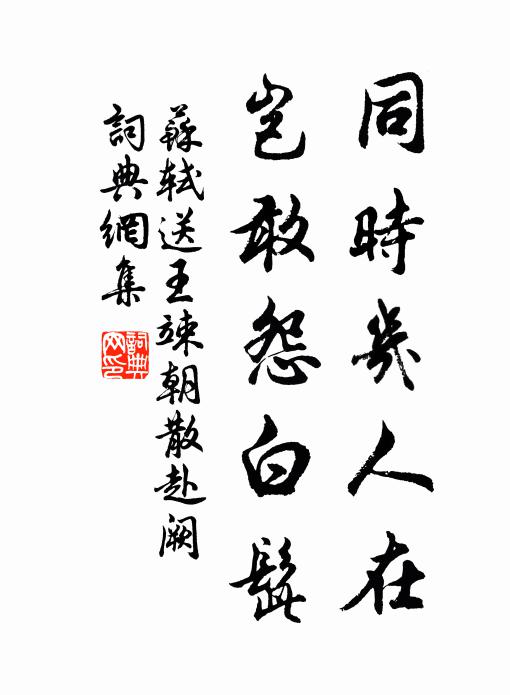 同時幾人在
豈敢怨白髭
蘇軾送王竦朝散赴闕
詞典網集
詞典
网印